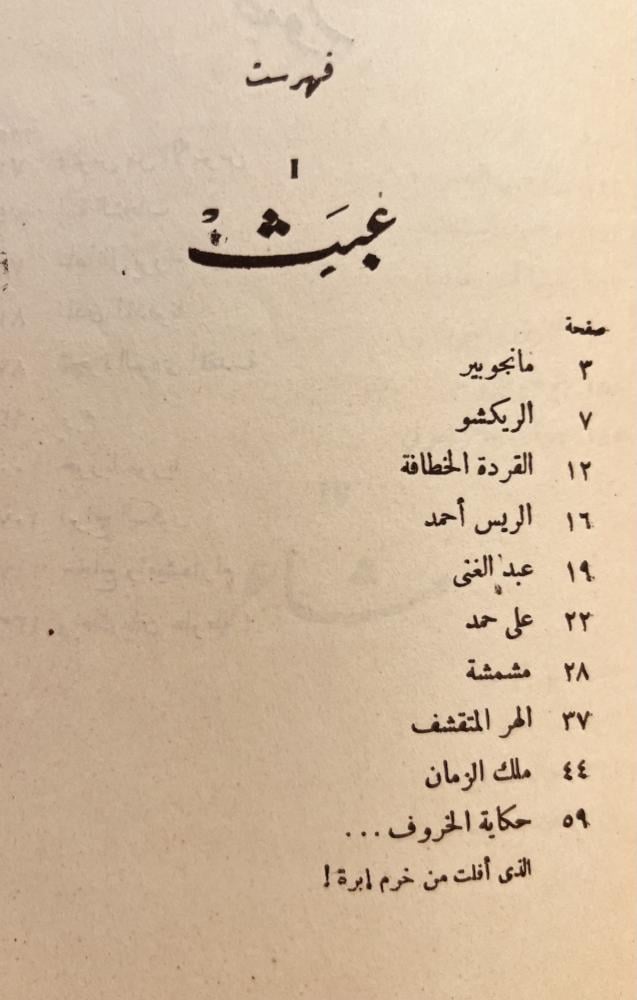 فهرست
١
عَبَثٌ
صفحة
٣ مانجوبير
٧ الريكشو
١٢ القردة الخطافة
١٦ الريس أحمد
١٩ عبد الغنى
٢٢ على حمد
٢٨ مشمشة
٣٧ الهر المتقشف
٤٤ ملك الزمان
٥٩ حكاية الخروف ...
الذى أفلت من خرم إبرة !